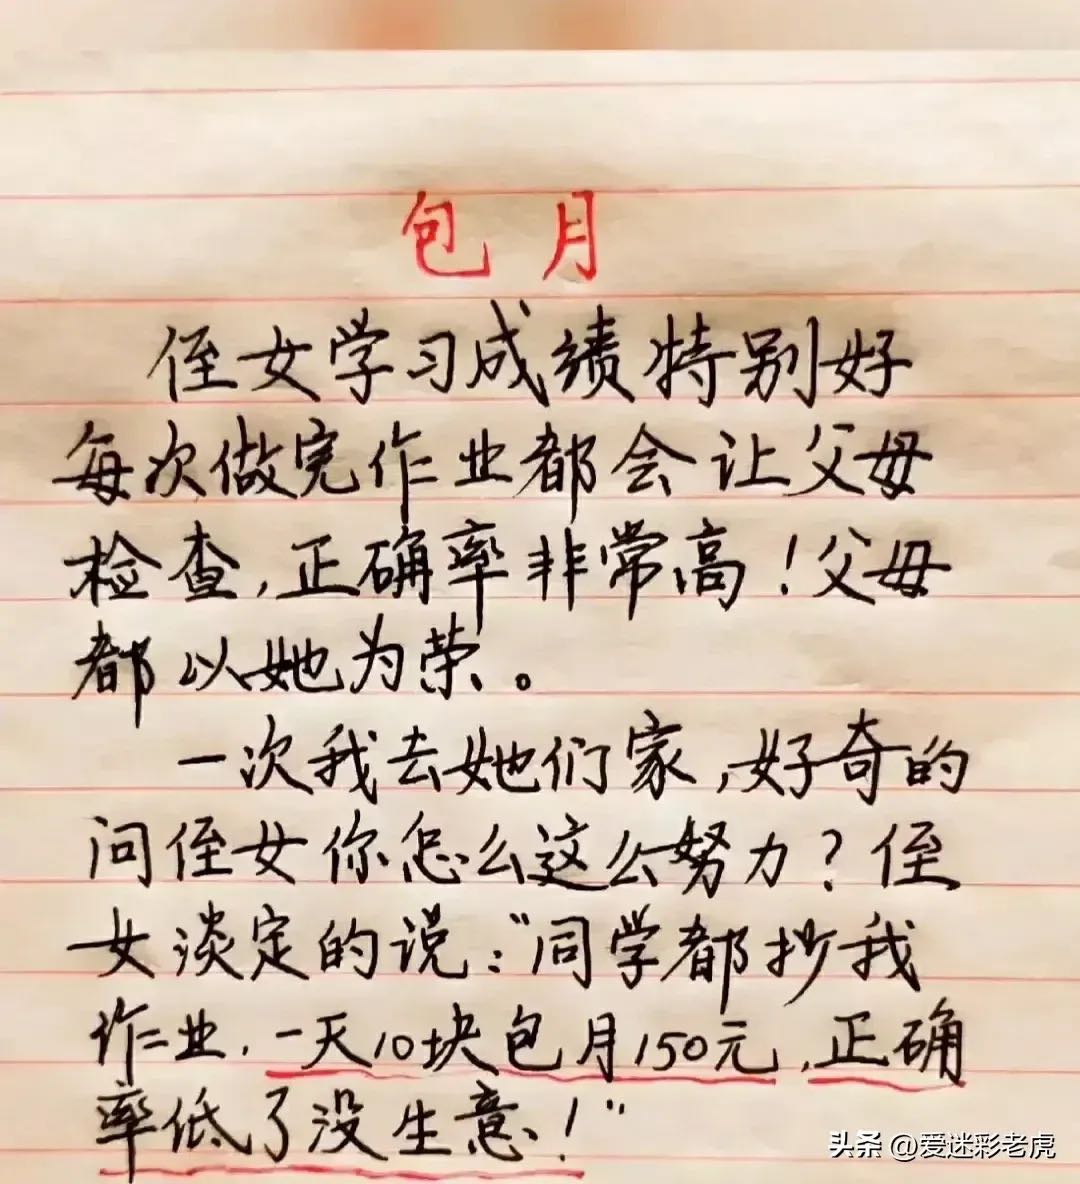 包月
侄女学习成绩特别好
每次做完作业都会让父母
检查,正确率非常高!父母
都以她为荣。
一次我去她们家,好奇的
问侄女你怎么这么努力?侄
女淡定的说:"同学都抄我
作业,一天10块包月150元,正确
率低了没生意!"
头条 @爱迷彩老虎